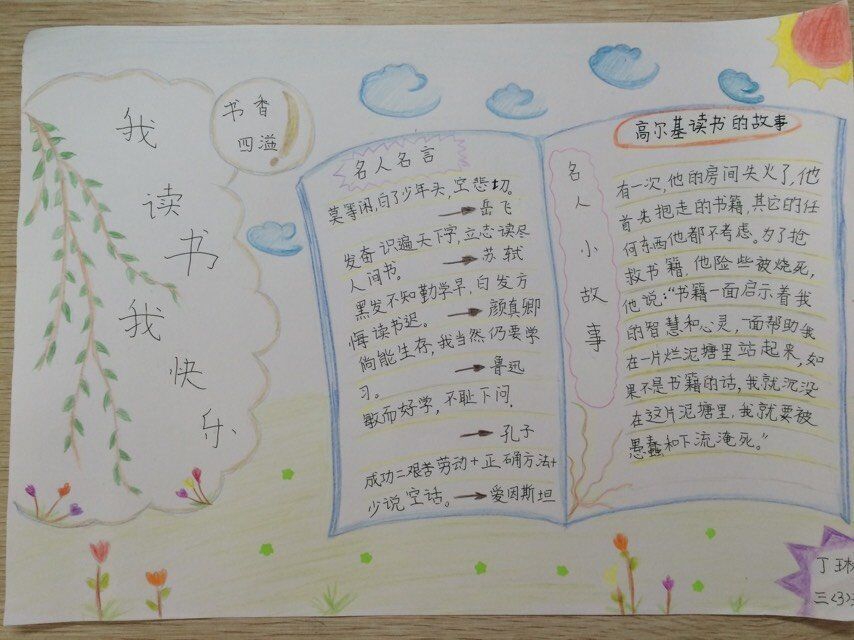 我
读
书
我
快
乐
书香
四溢
名人名言
莫等闲,白了少年头,空悲切。
→岳飞
发奋识遍天下字,立志读尽
人间书。 →苏轼
黑发不知勤学早,白发方
悔读书迟。 →颜真卿
倘能生存,我当然仍要学
习。 →鲁迅
敏而好学,不耻下问.
→孔子
成功=艰苦劳动+正确方法+
少说空话。→爱因斯坦
名人小故事
高尔基读书的故事
有一次,他的房间失火了,他
首先抱走的书籍,其它的任
何东西他都不考虑。为了抢
救书籍,他险些被烧死,
他说:“书籍一面启示着我
的智慧和心灵,一面帮助我
在一片烂泥塘里站起来,如
果不是书籍的话,我就沉没
在这片泥塘里,我就要被
愚蠢和下流淹死。”
丁
三〈3〉